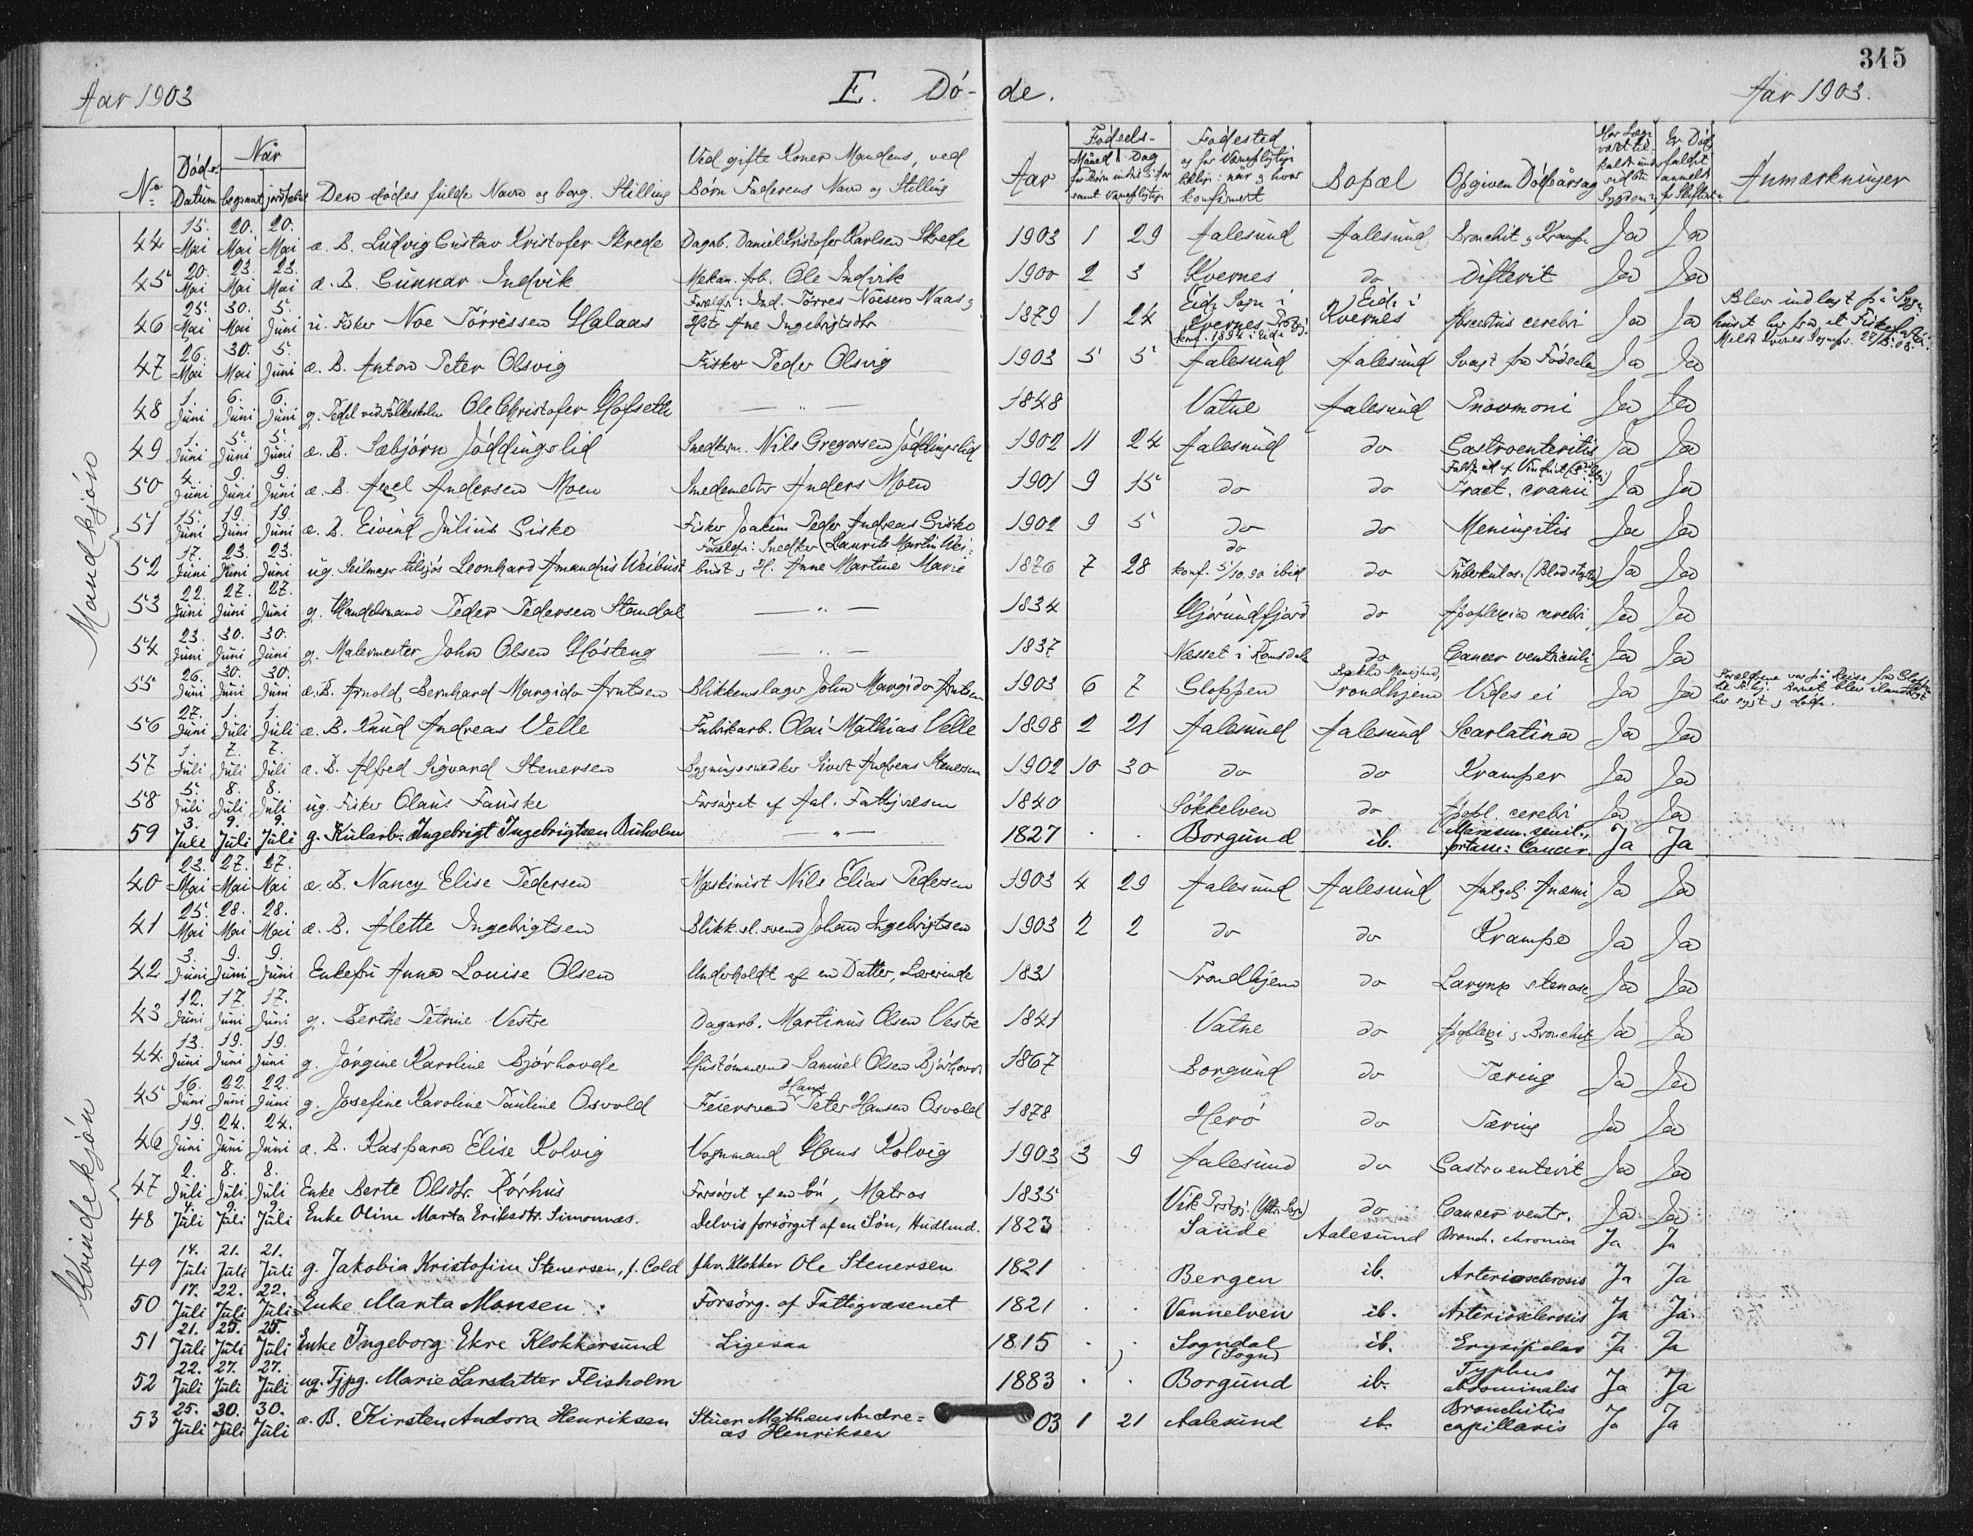 345
Aar 1903 E. Dö- de. Aar 1903.
No Döds-Datum Når begravet jordfæstet Den dödes fulde Navn og borg. Stilling Ved gifte Koner Mandens, ved Börn Faderens Navn og Stilling Aar Födsels- Måned Dag Födested Bopæl Opgiven Dödsårsag Anmærkninger
Mandkjön
44 15. Mai 20. Mai 20. Mai æ. B. Ludvig Gustav Kristofer Skrede Dagarb. Daniel Kristofer Karlsen Skrede 1903 1 29 Aalesund Aalesund Bronchit og Krampe Ja Ja
45 20. Mai 23. Mai 23. Mai æ. B. Gunnar Indvik Mekan. Arb. Ole Indvik 1900 2 3 Kvernes do Difterit Ja Ja
46 25. Mai 30. Mai 5. Juni u. Fisker Noe Törrissen Halaas Forældr: Ind. Törres Noesen Naas og Hst. Ane Ingebrigtsdtr 1879 1 24 Eide Sogn i Kvernes Prstgj. konf. 1894 i Eide Eide i Kvernes Abscestus cerebri Ja Ja Blev indlagt på Syge-
47 26. Mai 30. Mai 5. Juni æ. B. Anton Peter Olsvig Fisker Peder Olsvig 1903 5 5 Aalesund Aalesund Svagt fra Födselen Ja Ja
48 1. Juni 6. Juni 6. Juni g. Pedel ved Folkeskolen Ole Christofer Hofseth — " — 1848 Vatne Aalesund Pnevmoni Ja Ja
49 1. Juni 5. Juni 5. Juni æ. B. Sæbjörn Jöddingslid Snedkerm. Nils Gregorsen Jöddingslid 1902 11 24 Aalesund do Gastroenteritis Ja Ja
50 4. Juni 9. Juni 9. Juni æ. B. Axel Andersen Moen Smedemester Anders Moen 1901 9 15 do do Fract. cranii Ja Ja
51 15. Juni 19. Juni 19. Juni æ. B. Eivind Julius Giske Fisker Joakim Peder Andreas Giske 1902 9 5 do do Meningitis Ja Ja
52 17. Juni 23. Juni 23. Juni ug. Seilmager tilsjös Leonhard Amandus Weibust Forældr: Snedker Laurits Martin Wei-bust og H. Anne Martine Marie 1876 7 28 do konf. 5/10.90 ibid do Tuberkulos. (Blodstyrt) Ja Ja
53 22. Juni 27. Juni 27. Juni g. Handelsmand Peder Pedersen Standal — " — 1834 Hjörundfjord do Apoplexia cerebri Ja Ja
54 23. Juni 30. Juni 30. Juni g. Malermester John Olsen Hösteng — " — 1837 Næsset i Romsdal do Cancer ventriculi Ja Ja
55 26. Juni 30. Juni 30. Juni æ. B. Arnold Bernhard Margido Arntsen Blikkenslager John Margido Arntsen 1903 6 7 Gloppen Bakke Menighed, Trondhjem Vides ei Ja Ja Forældrene var på Reise fra Gloppen til Trhj. Barnet blev
56 27. Juni 1. Juli 1. Juli æ. B. Knud Andreas Velle Fabrikarb. Olai Mathias Velle 1898 2 21 Aalesund Aalesund Scarlatina Ja Ja
57 1. Juli 7. Juli 7. Juli æ. B. Alfred Sigvard Stenersen Bygningssnedker Sivert Andreas Stenersen 1902 10 30 do do Kramper Ja Ja
58 5. Juli 8. Juli 8. Juli ug. Fisker Olaus Fauske Forsörget af Aal. Fattigvesen 1840 Sökkelven do Apopl. cerebri Ja Ja
59 3. Juli 9. Juli 9. Juli g. Kularb. Ingebrigt Ingebrigtsen Buholm — " — 1827 . . Borgund ib. Marasm. senil., fortasse: Cancer Ja Ja
Kvindekjön
40 23. Mai 27. Mai 27. Mai æ. B. Nancy Elise Pedersen Maskinist Nils Elias Pedersen 1903 4 29 Aalesund Aalesund Anæmi Ja Ja
41 25. Mai 28. Mai 28. Mai æ. B. Alette Ingebrigtsen Blikk.sl.svend Johan Ingebrigtsen 1903 2 2 do do Krampe Ja Ja
42 3. Juni 9. Juni 9. Juni Enkefru Anna Louise Olsen Underholdt af en Datter, Lærerinde 1831 Trondhjem do Larynx stenose Ja Ja
43 12. Juni 17. Juni 17. Juni g. Berthe Petrine Vestre Dagarb. Martinus Olsen Vestre 1841 Vatne do Apoplexi og Bronchit Ja Ja
44 13. Juni 19. Juni 19. Juni g. Jörgine Karoline Björhovde Hustömmermd Samuel Olsen Björhovde 1867 Borgund do Tæring Ja Ja
45 16. Juni 22. Juni 22. Juni g. Josefine Karoline Pauline Osvold Feiersvend Hans Peter Hansen Osvold 1878 Herö do Tæring Ja Ja
46 19. Juni 24. Juni 24. Juni æ. B. Kaspara Elise Kolvig Vognmand Hans Kolvig 1903 3 9 Aalesund do Gastroenterit Ja Ja
47 2. Juli 8. Juli 8. Juli Enke Berte Olsdtr. Rörhus Forsörget af en Sön, Matros 1835 Vik Prstgj. do Cancer ventr. Ja Ja
48 4. Juli 9. Juli 9. Juli Enke Oline Marta Eriksdtr. Simonnæs. Delvis forsörget af en Sön, Hudlend. 1823 . . Sande Aalesund Bronch. chronica Ja Ja
49 14. Juli 21. Juli 21. Juli g. Jakobia Kristofine Stenersen, f. Cold fhv. Klokker Ole Stenersen 1821 . . Bergen ib. Arteriosclerosis Ja Ja
50 17. Juli 22. Juli 22. Juli Enke Marta Monsen Forsörg. af Fattigvæsenet 1821 . . Vannelven ib. Arteriosclerosis Ja Ja
51 21. Juli 25. Juli 25. Juli Enke Ingeborg Ekre Klokkersund Ligesaa 1815 . . Sogndal (Sogn) ib. Erysipelas Ja Ja
52 22. Juli 27. Juli 27. Juli ug. Tjpg. Marie Larsdatter Flisholm 1883 . . Borgund ib. Typhus abdominalis Ja Ja
53 25. Juli 30. Juli 30. Juli æ. B. Kirsten Andora Henriksen Stuer Mathæus Andre-as Henriksen 03 1 21 Aalesund ib. Bronchitis capillaris Ja Ja